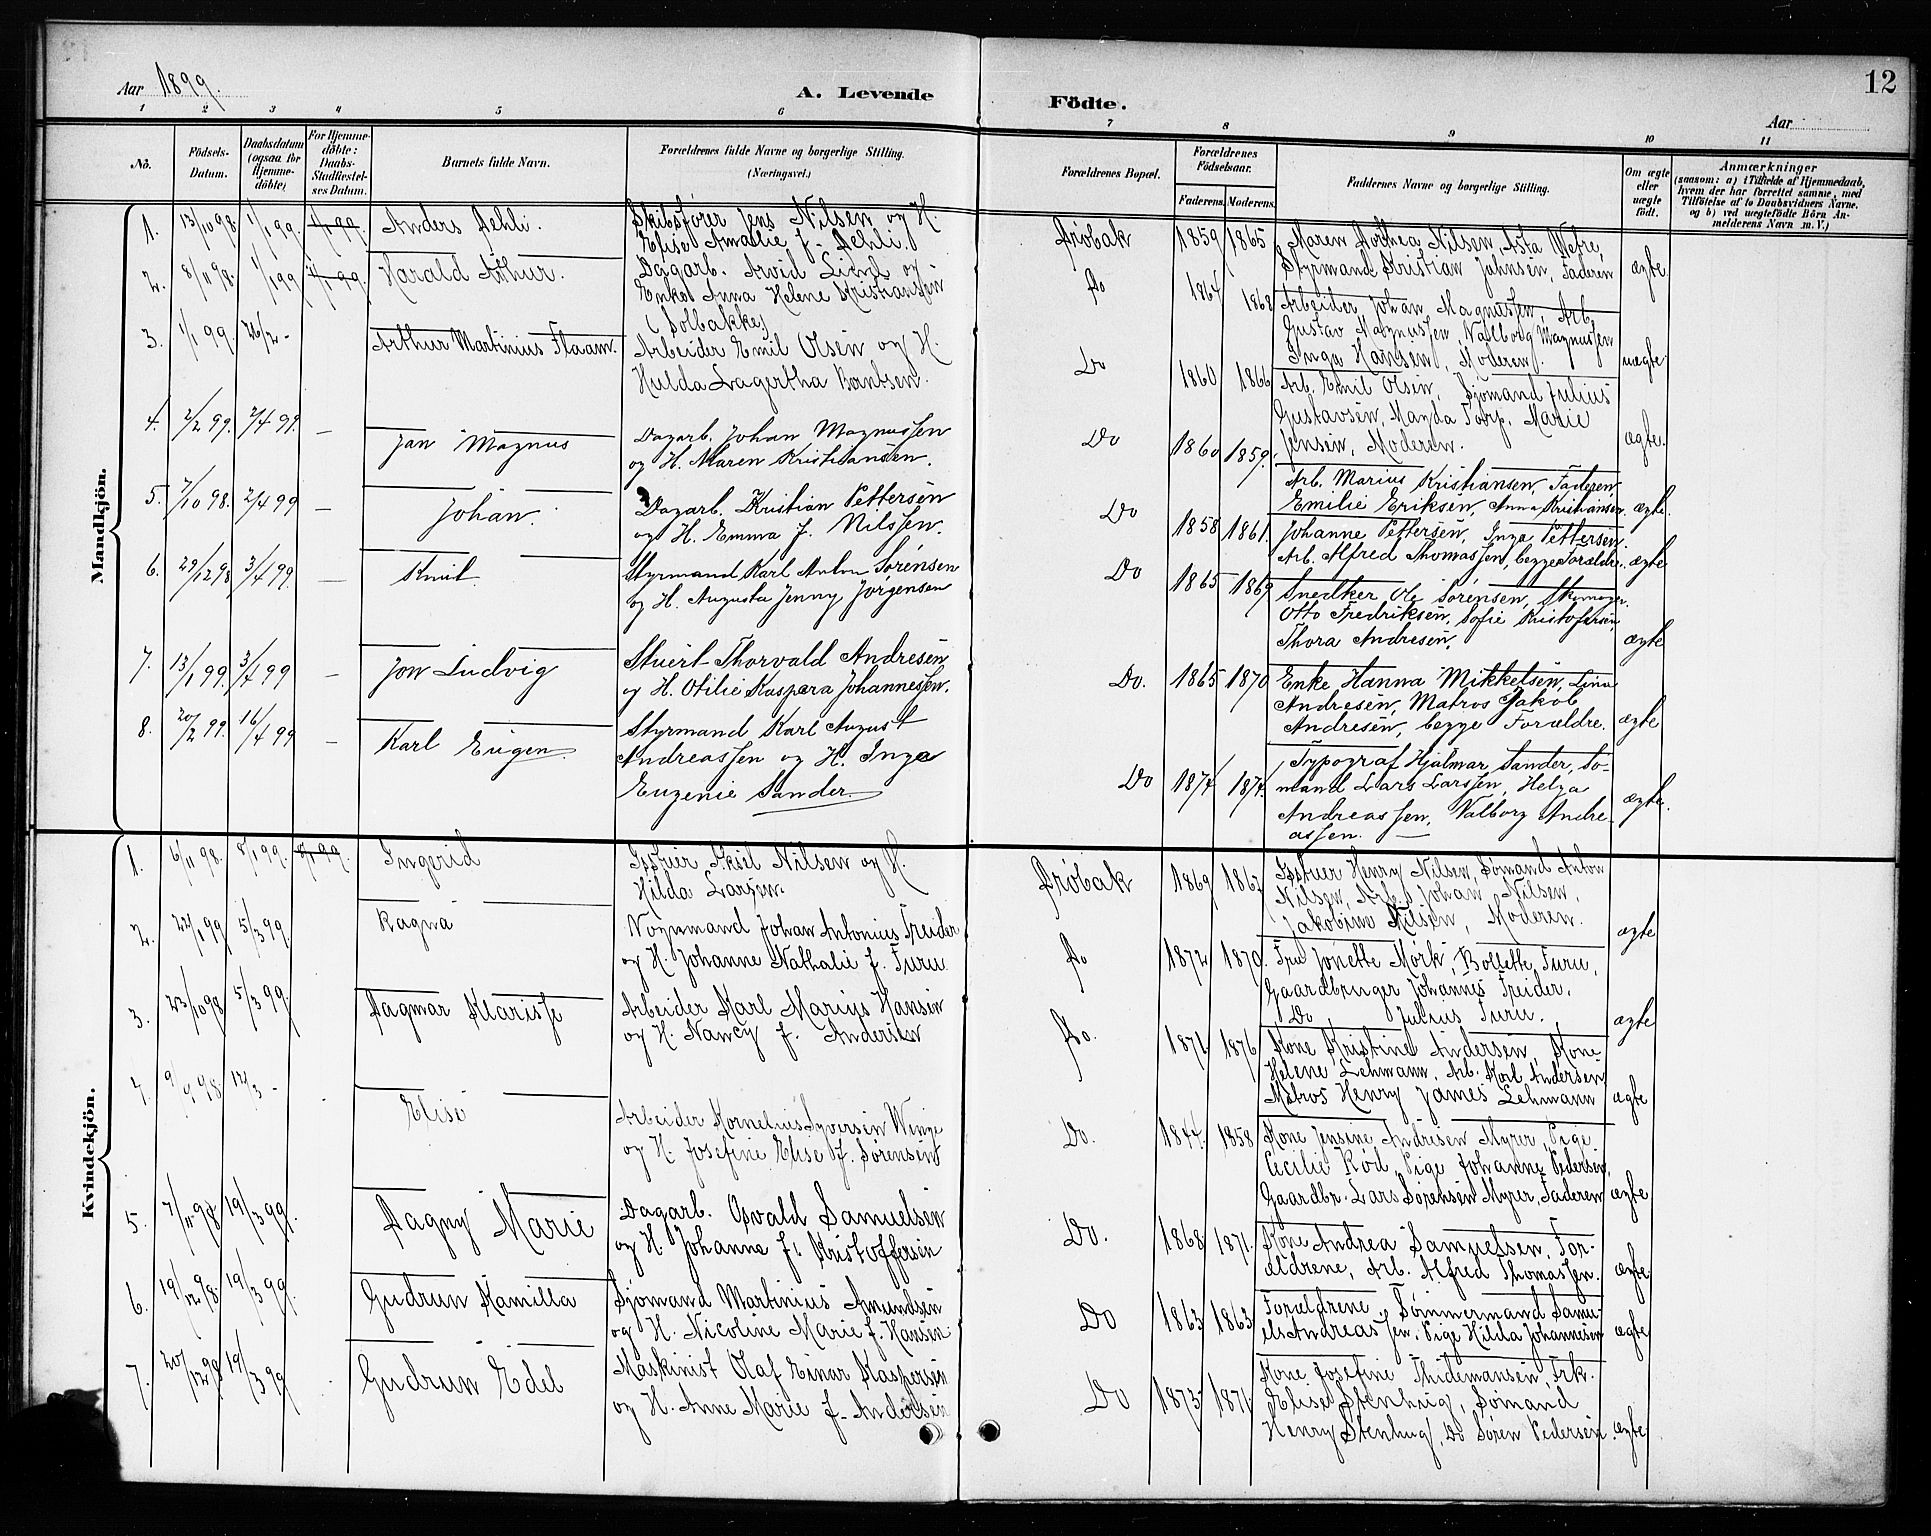 12
Aar 1899.
A. Levende
Födte.
Aar
1 2 3 4 5 6 7 8 9 10 11
No.
Födsels-
Datum.
Daabsdatum
(ogsaa for
Hjemme-
döbte)
For Hjemme-
döbte:
Daabs-
Stadfæstel-
ses Datum.
Barnets fulde Navn.
Forældrenes fulde Navne og borgerlige Stilling.
(Næringsvei.)
Forældrenes Bopæl.
Forældrenes
Födselsaar.
Faderens.
Moderens.
Faddernes Navne og borgerlige Stilling.
Om ægte
eller
uægte
födt.
Anmærkninger
(saasom: a) i Tilfælde af Hjemmedaab,
hvem der har forrettet samme, med
Tilföielse af to Daabsvidners Navne.
og b) ved uægtefödte Börn An-
melderens Navn m. V.)
Mandkjön.
1. 13/10 98 1/1 99. 1/1 99. Anders Aehli.
Skibsfører Jens Nilsen og H.
Elise Amalie f. Aehli.
Drøbak 1859 1865
Maren Dorthea Nilsen, Asta Wefre,
Styrmand Kristian Johnsen, Faderen
ægte.
2. 8/11 98. 1/1 99 1/1 99. Harald Arthur.
Dagarb. Arvid og
Enke Anna Helene Kristiansen
(Solbakke)
Do 1864 1868
Arbeider Johan Magnussen, Arb.
Gustav Magnussen, Valborg Magnussen
Inga Hansen, Moderen.
uægte
3. 1/1 99. 26/2 - Arthur Martinius Flaam.
Arbeider Emil Olsen og H.
Hulda Lagertha Berntsen.
Do 1860 1866
Arb. Emil Olsen, Sjömand Julius
Gustavsen, Magda Torp, Marie
Jensen, Moderen.
ægte.
4. 2/2 99. 2/4 99. — Jan Magnus
Dagarb. Johan Magnussen
og H. Maren Kristiansen.
Do 1860 1859.
Arb. Marius Kristiansen, Faderen,
Emilie Eriksen, Anna Kristiansen.
ægte.
5. 7/10 98. 2/4 99 — Johan.
Dagarb. Kristian Pettersen
og H. Emma f. Nilssen.
Do 1858 1861.
Johanne Pettersen, Inga Pettersen.
Arb. Alfred Thomassen, begge Forældre.
ægte
6. 29/12 98 3/4 99. — Knut
Styrmand Karl Anton Sørensen
og H. Augusta Jenny Jørgensen
Do 1865 1869
Snedker Ole Sørensen, Skomager.
Otto Fredriksen, Sofie Kristofersen,
Thora Andresen.
ægte
7. 13/1 99. 3/4 99 — Jon Ludvig
Stuert Thorvald Andresen
og H. Otilie Kaspara Johannessen.
Do. 1865 1870
Enke Hanna Mikkelsen, Lina
Andresen, Matros Jakob
Andresen, begge Forældre.
ægte
8. 20/2 99. 16/4 99 — Karl Eugen
Styrmand Karl August
Andreassen og H. Inga
Eugenie Sander.
Do 1874 1874.
Typograf Hjalmar Sander, Sø-
mand Lars Larssen, Helga
Andreassen, Valborg Andre-
assen. —
ægte.
Kvindekjön.
1. 6/11 98. 8/1 99. 8/1 99. Ingerid
Aksel Nilsen og H.
Hilda Larsen.
Drøbak 1869 1867
Henry Nilsen, Sømand Anton
Nilsen, Arb. Johan Nilsen,
Jakobine Nilsen, Moderen.
ægte
2. 22/1 99 5/3 99. Ragna
Vognmand Johan Antonius Treider
og H. Johanne Nathalie f. Furu.
Do 1872 1870.
Fru Jonette Mørk, Bollette Furu,
Gaardbruger Johannes Treider,
Do Julius Furu.
ægte
3. 23/10 98 5/3 99. Dagmar Klarisse
Arbeider Karl Marius Hansen
og H. Nancy f. Andersen
Do. 1871 1876
Kone Kristine Andersen, Kone
Helene Lehmann, Arb. Karl Andersen
Matros Henry James Lehmann
ægte
4. 98 12/3 - Elise
Arbeider Kornelius Syversen Winge
og H. Josefine Elise f. Sørensen
Do. 1844. 1858
Kone Jensine Andresen Myrer, Pige
Cecilie Rød, Pige Johanne Pedersen,
Gaardbr. Lars Sørensen Myrer, Faderen
ægte
5. 7/11 98 19/3 99. Dagny Marie
Dagarb. Osvald Samuelsen
og H. Johanne f. Kristoffersen
Do. 1868 1871.
Kone Andrea Samuelssen, For-
ældrene, Arb. Alfred Thomassen.
ægte.
6. 19/12 98. 19/3 99. Gudrun Kamilla
Sjömand Martinius Amundsen
og H. Nicoline Marie f. Hansen
Do 1863 1863
Forældrene, Tømmermand Samu-
els Andreassen, Pige Hilda Johannesen
ægte
7. 20/12 98 19/3 99 Gudrun Edel
Maskinist Olaf Einar Kaspersen
og H. Anne Marie f. Andersen
Do 1873 1871
Kone Josefine Thidemansen, Frk.
Elise Stenhug, Sømand
Henry Stenhug, Do Søren Pedersen.
ægte